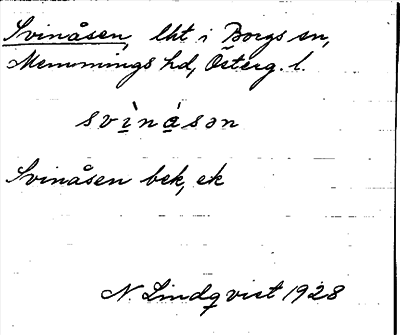 Svinåsen, lht i Borgs sn,
Memmings hd, Österg. l.
svìnásən
Svinåsen bek, ek
N. Lindqvist 1928